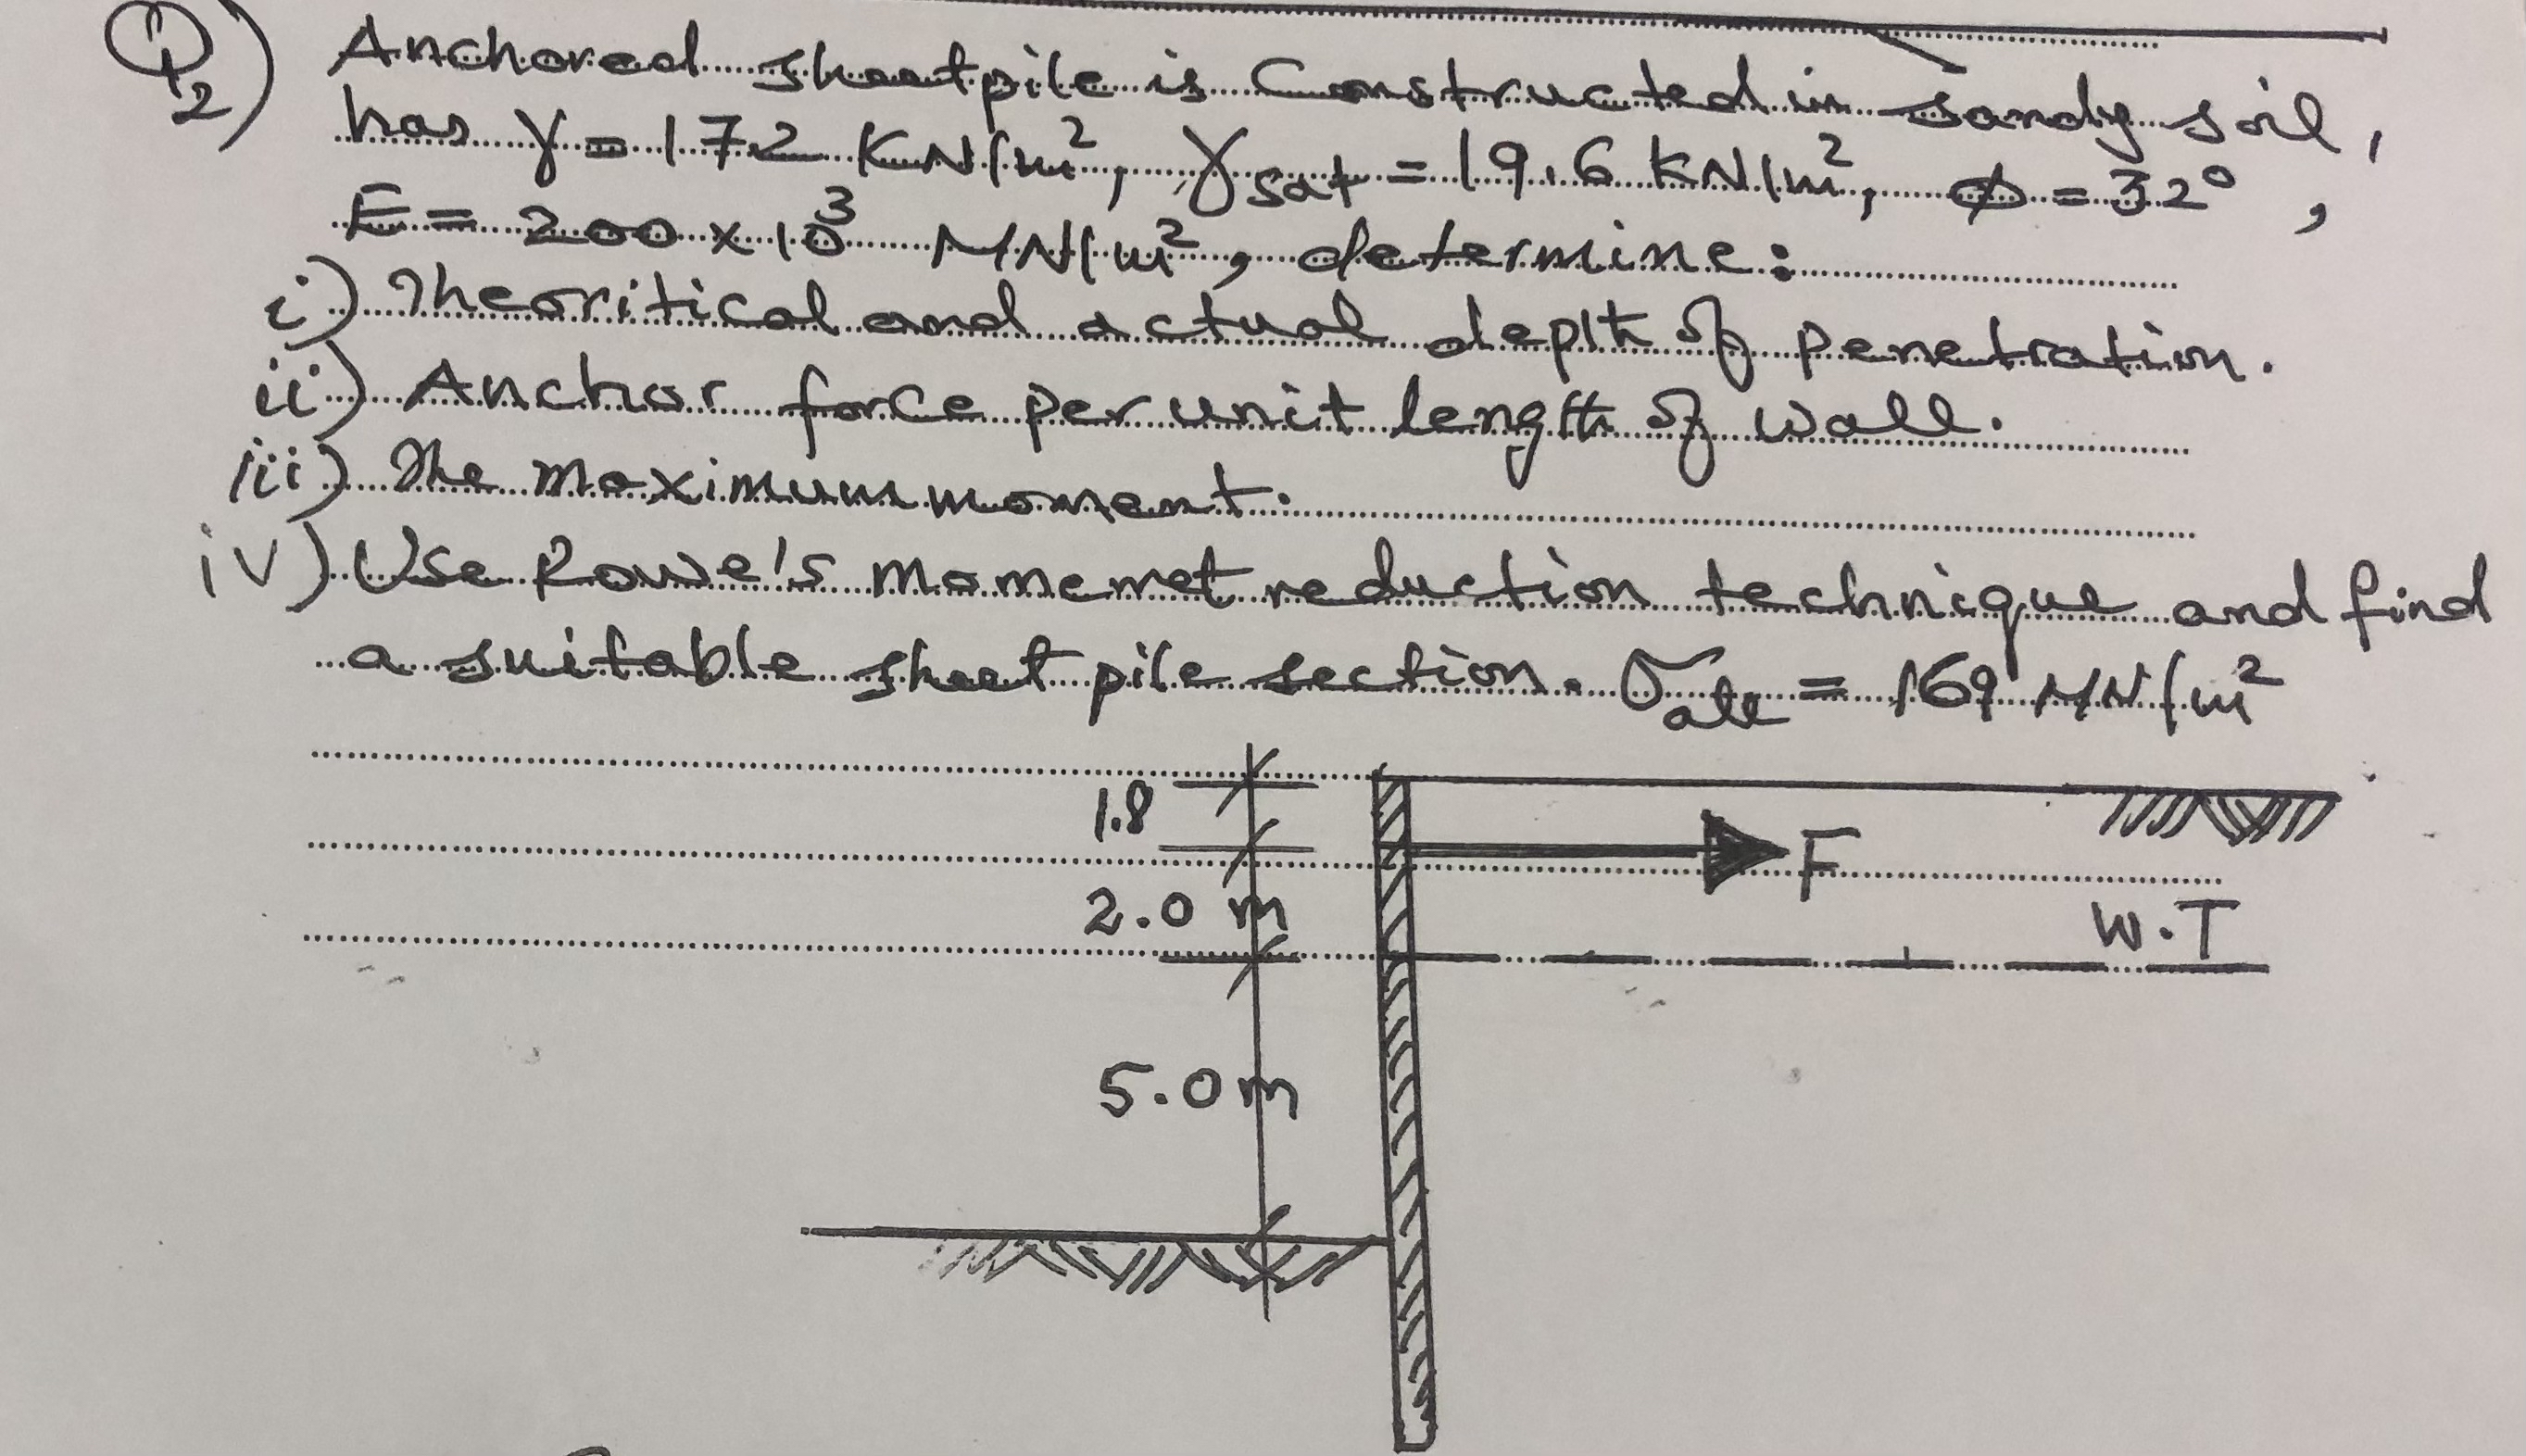 Q2) Anchored sheetpile is Constructed in sandy soil,
has γ = 172 KN/m², γsat = 19.6 kN/m², φ = 32°,
E = 200 x 10³ MN/m², determine:
i) Theoritical and actual depth of penetration.
ii) Anchor force per unit length of wall.
iii) The maximum moment.
iv) Use Rowe's momemet reduction technique and find
a suitable sheet pile section. σall = 169 MN/m²
1.8
F
2.0 m
W.T
5.0m